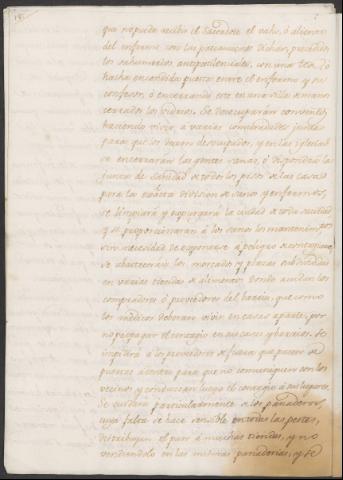 que no pueda recibir el Sacerdote el vaho, ó aliento
del enfermo con las precauciones dichas, precedidos
los sahumerios antipestilenciales, con una tea, ó
hacha encendida puesta entre el enfermo y su
confesor, ó encerrando este en una silla de manos
cerrados los vidrios. Se desocuparán conventos,
haciendo vivir, a varias comunidades juntas
para que los dexen desocupados, y en las iglesias
se encerrarán las gentes sanas, ó dispondrá la
junta de Sanidad de todos los pisos de las casas
para la exâcta division de sanos y enfermos,
se limpiará y espurgará la ciudad de toda suciedad
y se proporcionarán á los sanos los mantenim.tos
sin necesidad de exponerse a peligro de contagiarse,
se abastecerán los mercados y plazas subdivididas
en varias tiendas de alimentos donde acudan los
compradores ó proveedores del barrio, que como
los médicos deberán vivir en casas aparte, por
no pegar el contagio en sus casas y barrios. Se
impedirá á los proveedores de fuera que pasen de
puertas adentro para que no comuniquen con los
vecinos y conduzcan luego el contagio á sus lugares.
Se cuidará particularmente de los panaderos,
cuya falta se hace sensible en todas las pestes,
distribuyan el pan á muchas tiendas, y no
vendiendolo en las mismas panaderias, y se